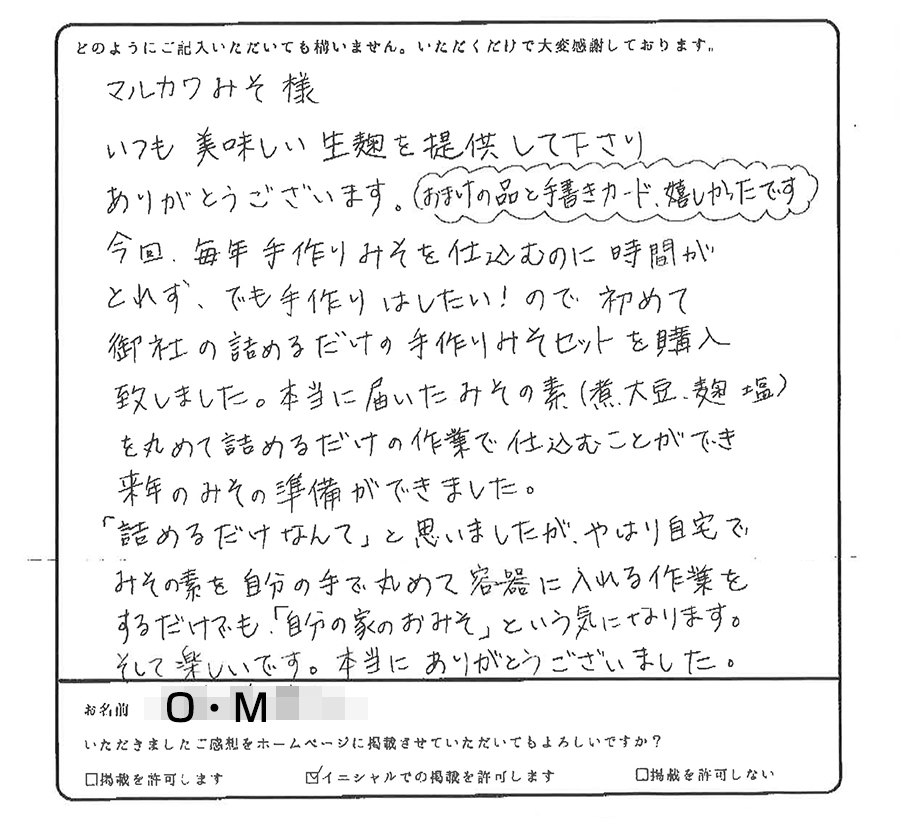 どのようにご記入いただいても構いません。いただくだけで大変感謝しております。
マルカワみそ 様
いつも 美味しい 生麹を提供 して下さり
ありがとうございます。(おまけの品と手書きカード、嬉しかったです)
今回、毎年 手作り みそを仕込むのに 時間が
とれず、でも手作り はしたい!ので 初めて
御社の詰めるだけの手作りみそセットを購入
致しました。本当に届いたみその素(煮大豆、麹 塩)
を丸めて詰めるだけの作業で仕込むことができ
来年のみその準備ができました。
「詰めるだけなんて」と思いましたが、やはり自宅で
みその素を自分の手で丸めて容器に入れる作業を
するだけでも、「自分の家のおみそ」という気になります。
そして楽しいです。本当に ありがとうございました。
お名前 O・M
いただきましたご感想をホームページに掲載させていただいてもよろしいですか?
□掲載を許可します ☑イニシャルでの掲載を許可します □掲載を許可しない